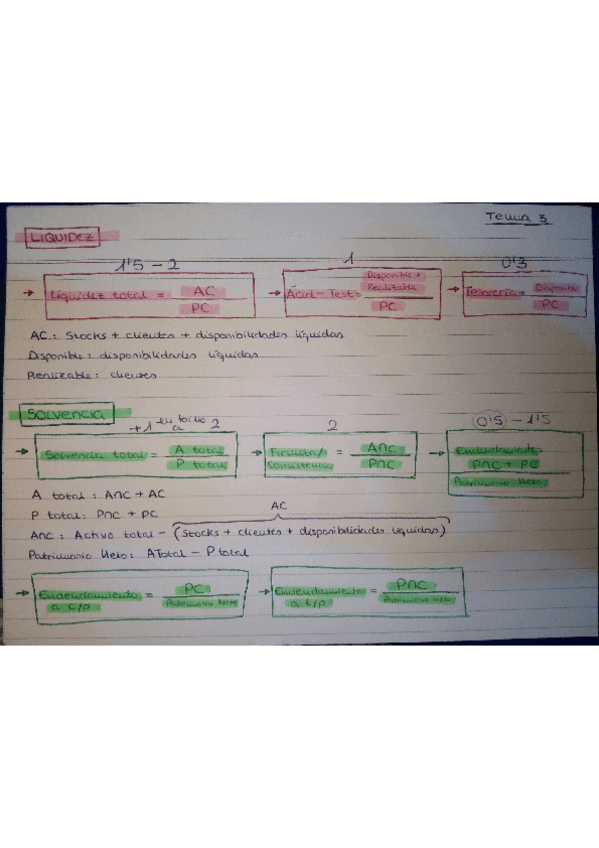 Tema 3
LIQUIDEZ
1'5 – 2
1
0'3
→ Liquidez total = AC / PC
→ Ácid-Test = Disponible + Realizable / PC
→ Tesorería = Disponible / PC
AC: Stocks + clientes + disponibilidades líquidas
Disponible: disponibilidades líquidas
Realizable: clientes
SOLVENCIA
+1 en torno a 2
2
0'5 – 1'5
→ Solvencia total = A total / P total
→ Firmeza/Consistencia = Anc / Pnc
→ Endeudamiento = Pnc + PC / Patrimonio Neto
A total: Anc + AC
P total: Pnc + PC
AC
Anc: Activo total – (Stocks + clientes + disponibilidades líquidas)
Patrimonio Neto: A Total – P total
→ Endeudamiento a c/p = PC / Patrimonio Neto
→ Endeudamiento a l/p = Pnc / Patrimonio Neto